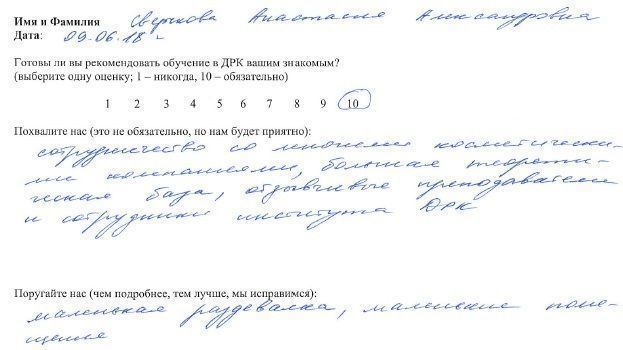 Имя и Фамилия Сверчкова Анастасия Александровна
Дата: 09.06.18 г.
Готовы ли вы рекомендовать обучение в ДРК вашим знакомым?
(выберите одну оценку; 1 – никогда, 10 – обязательно)
1 2 3 4 5 6 7 8 9 10
Похвалите нас (это не обязательно, но нам будет приятно):
сотрудничество со многими косметически-
ми компаниями, большая теорети-
ческая база, отзывчивые преподаватели
и сотрудники института ДРК
Поругайте нас (чем подробнее, тем лучше, мы исправимся):
маленькая раздевалка, маленькие поме-
щение